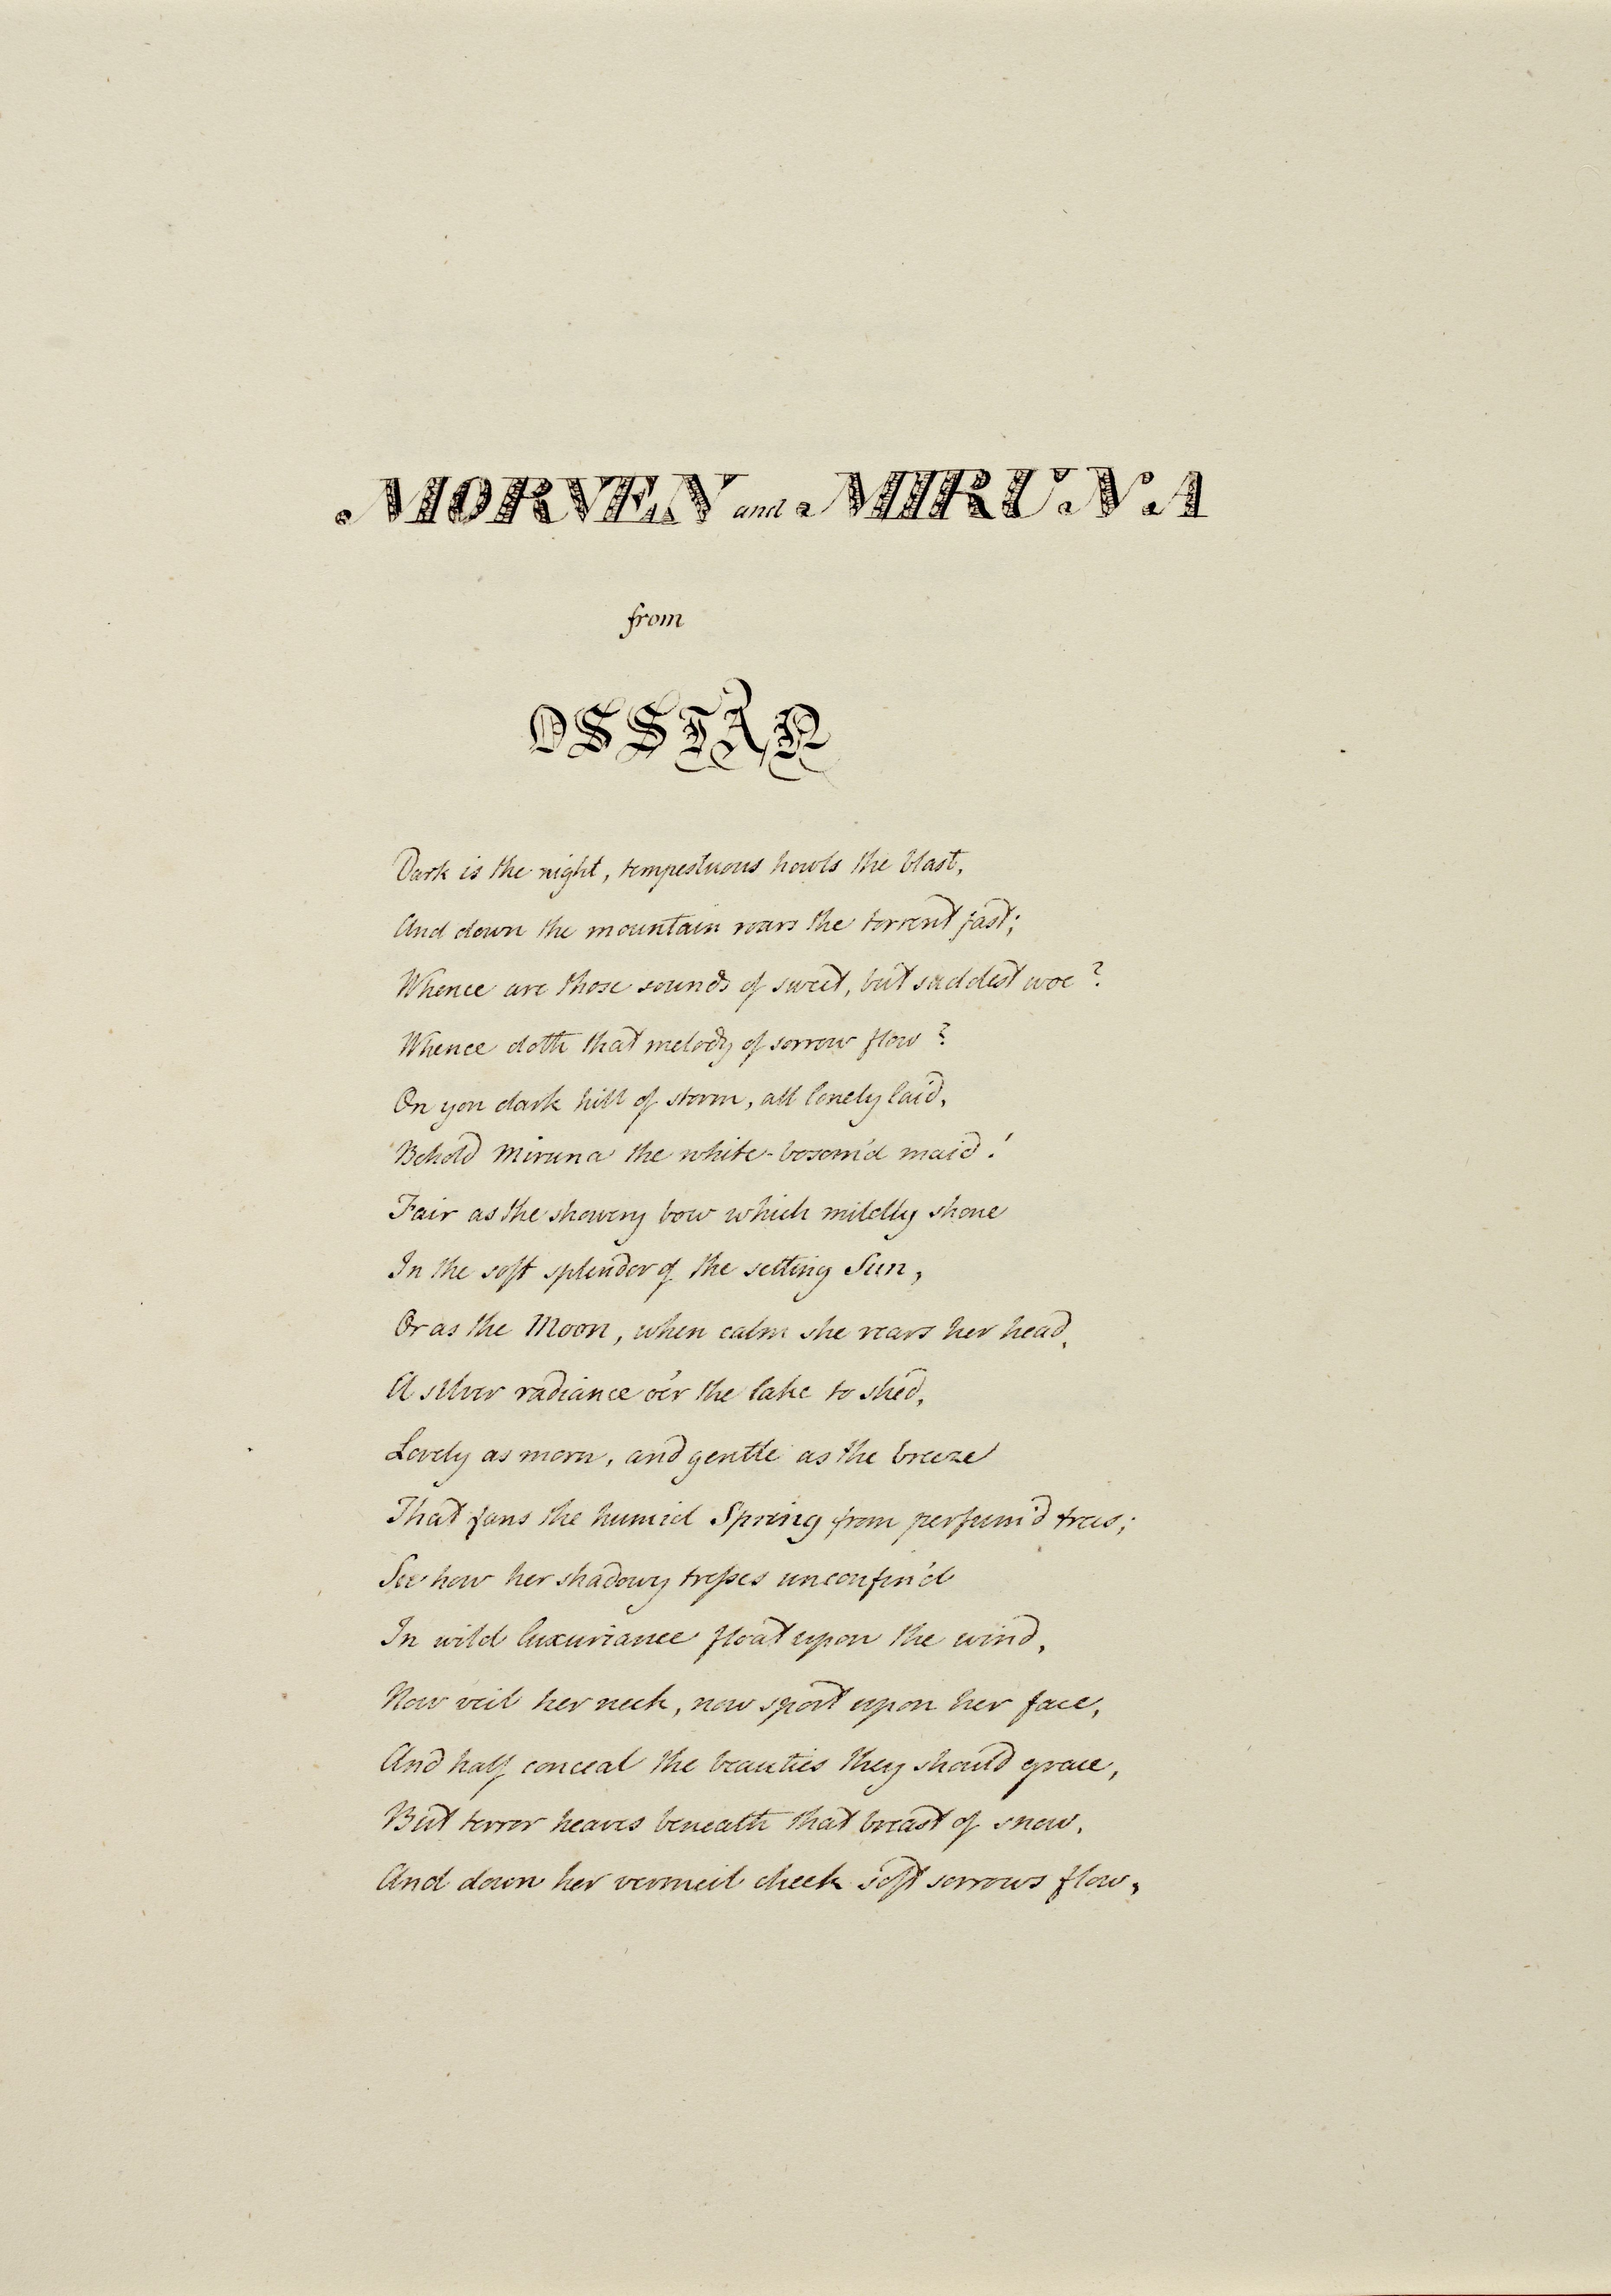 MORVEN and MIRUNA
from
OSSIAN
Dark is the night, tempestuous howls the blast,
And down the mountain roars the torrent fast;
Whence are those sounds of sweet, but saddest woe?
Whence doth that melody of sorrow flow?
On yon dark hill of storm, all lonely laid,
Behold Miruna the white-bosom'd maid!
Fair as the showery bow which mildly shone
In the soft splendor of the setting Sun,
Or as the Moon, when calm she rears her head,
A silver radiance o'er the lake to shed,
Lovely as morn, and gentle as the breeze
That fans the humid Spring from perfum'd trees;
See how her shadowy tresses unconfin'd
In wild luxuriance float upon the wind,
Now veil her neck, now sport upon her face,
And half conceal the beauties they should grace,
But terror heaves beneath that breast of snow,
And down her vermeil cheek soft sorrows flow,